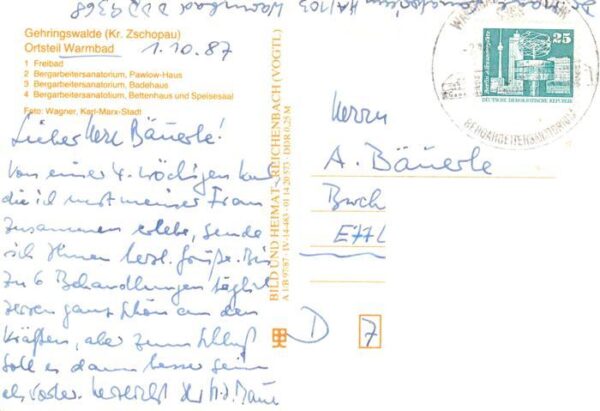 Warmbad DDR 9368
Gehringswalde (Kr. Zschopau)
Ortsteil Warmbad
1.10.87
1 Freibad
2 Bergarbeitersanatorium, Pawlow-Haus
3 Bergarbeitersanatorium, Badehaus
4 Bergarbeitersanatorium, Bettenhaus und Speisesaal
Foto: Wagner, Karl-Marx-Stadt
Lieber Herr Bäuerle!
Von einer 4-wöchigen Kur
die ich mit meiner Frau
zusammen erlebe, sende
ich Ihnen herzl. Grüße. Bis
zu 6 Behandlungen täglich
zerren ganz schön an den
Kräften, aber zum Schluß
soll es dann besser sein
als vorher. Herzlichst
BILD UND HEIMAT · REICHENBACH (VOGTL)
A 1/B 97/87 · IV-14-463 · 01 14 20 573 · DDR 0,25 M
25
DEUTSCHE DEMOKRATISCHE REPUBLIK
BERGARBEITERSANATORIUM
Herrn
A. Bäuerle
D
7